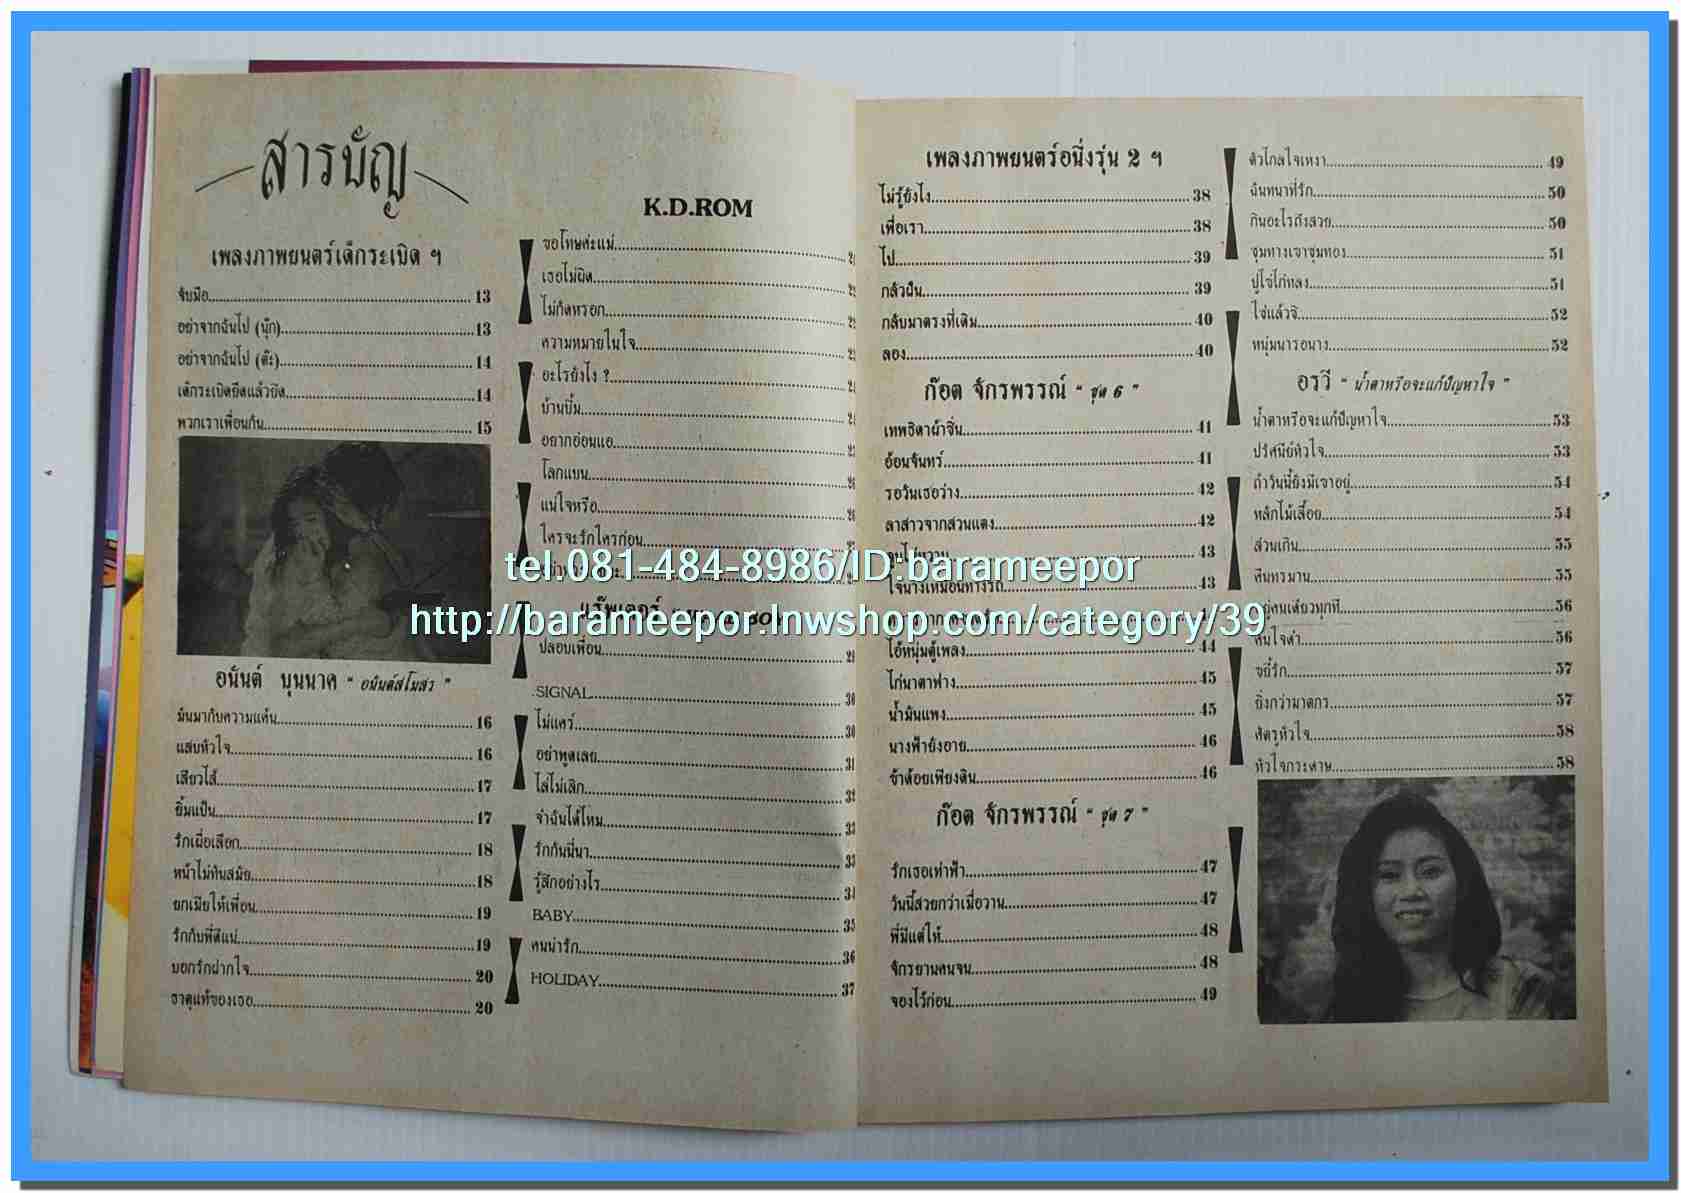 สารบัญ
เพลงภาพยนตร์เด็กระเบิด ฯ
จับมือ 13
อย่าจากฉันไป (นุ๊ก) 13
อย่าจากฉันไป (ต๊ะ) 14
เด็กระเบิดยืดแล้วยึด 14
พวกเราเพื่อนกัน 15
อนันต์ บุนนาค " อนันต์สโมสร "
มันมากับความแค้น 16
แสบหัวใจ 16
เสียวไส้ 17
ยิ้มแป้น 17
รักเผื่อเลือก 18
หน้าไม่ทันสมัย 18
ยกเมียให้เพื่อน 19
รักกับพี่ดีแน่ 19
บอกรักฝากใจ 20
ธาตุแท้ของเธอ 20
K.D.ROM
ขอโทษค่ะแม่
เธอไม่ผิด
ไม่กัดหรอก
ความหมายในใจ
อะไรยังไง ?
บ้านบึ้ม
อยากอ่อนแอ
โลกแบน
แน่ใจหรือ
ใครจะรักใครก่อน
แร๊พเตอร์
ปลอบเพื่อน
SIGNAL 30
ไม่แคร์ 30
อย่าพูดเลย 31
ไล่ไม่เลิก 32
จำฉันได้ไหม 33
รักกันนี่นา 33
รู้สึกอย่างไร 34
BABY 35
คนน่ารัก 36
HOLIDAY 37
เพลงภาพยนตร์อนึ่งรุ่น 2 ฯ
ไม่รู้ยังไง 38
เพื่อเรา 38
ไป 39
กลัวฝัน 39
กลับมาตรงที่เดิม 40
ลอง 40
ก๊อต จักรพรรณ์ " ชุด 6 "
เทพธิดาผ้าซิ่น 41
อ้อนจันทร์ 41
รอวันเธอว่าง 42
ลาสาวจากสวนแตง 42
43
ใจนางเหมือนทางรถ 43
ไอ้หนุ่มตู้เพลง 44
ไก่นาตาฟาง 45
น้ำมันแพง 45
นางฟ้ายังอาย 46
ข้าด้อยเพียงดิน 46
ก๊อต จักรพรรณ์ " ชุด 7 "
รักเธอเท่าฟ้า 47
วันนี้สวยกว่าเมื่อวาน 47
พี่มีแต่ให้ 48
จักรยานคนจน 48
จองไว้ก่อน 49
ตัวไกลใจเหงา 49
ฉันทนาที่รัก 50
กินอะไรถึงสวย 50
ชุมทางเขาชุมทอง 51
ปูไข่ไก่หลง 51
ใช่แล้วจ้ะ 52
หนุ่มนารอนาง 52
อรวี " น้ำตาหรือจะแก้ปัญหาใจ "
น้ำตาหรือจะแก้ปัญหาใจ 53
ปรัศนีย์หัวใจ 53
ถ้าวันนี้ยังมีเขาอยู่ 54
หลักไม้เลื้อย 54
ส่วนเกิน 55
คืนทรมาน 55
อยู่คนเดียวทุกที 56
คนใจดำ 56
ขยี้รัก 57
ยิ่งกว่ามาตกร 57
ศัตรูหัวใจ 58
หัวใจกระดาษ 58
tel.081-484-8986/ID:barameepor
http://barameepor.lnwshop.com/category/39